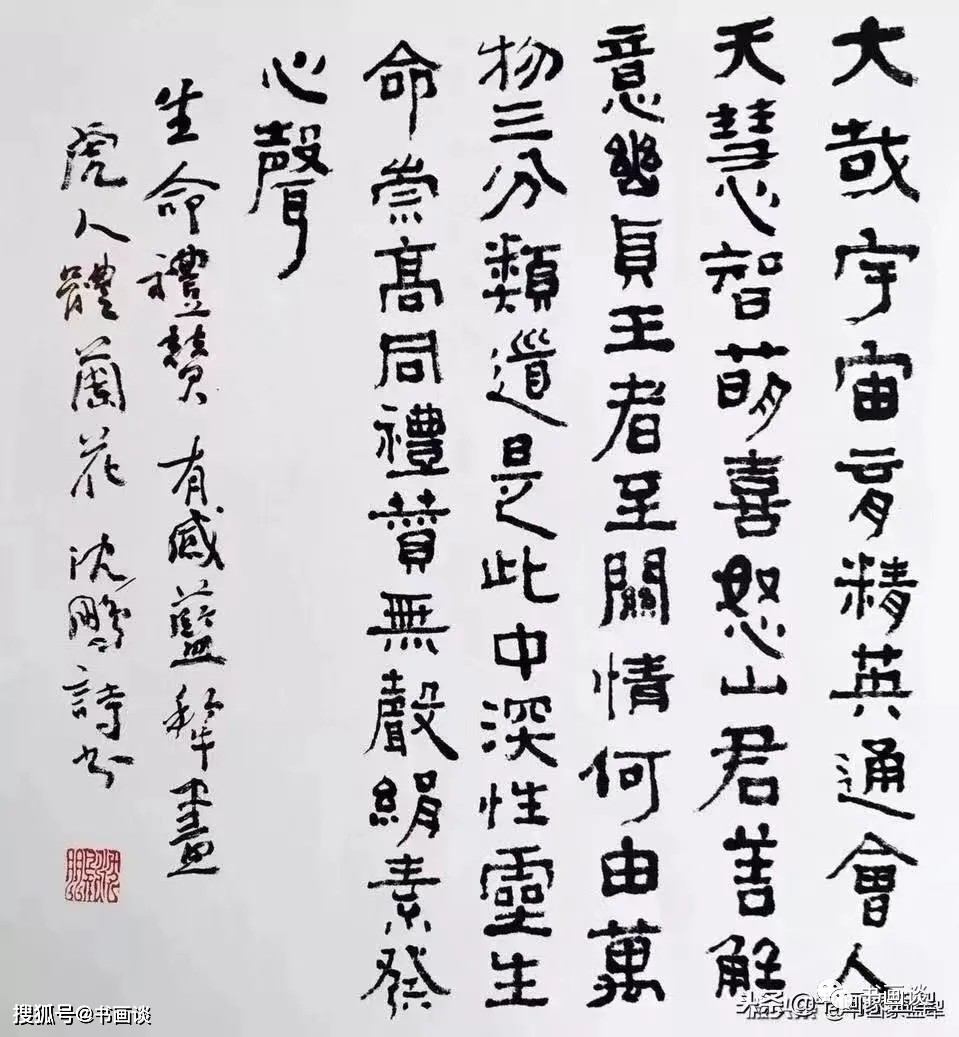 大哉宇宙育精英通會人
天慧智萌喜怒山君善解
意幽貞王者至關情何由萬
物三分類道是此中深性靈生
命崇高同禮贊無聲絹素發
心聲
生命禮贊 有感藍犁畫
虎人體蘭花 沈鵬詩書
搜狐号@书画谈
书画谈